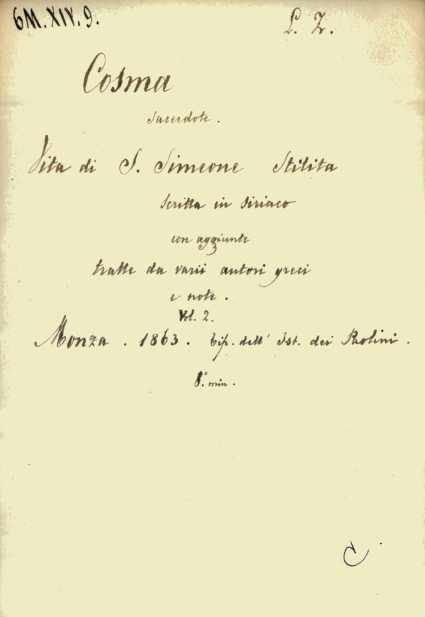 6M. XIV. 9.
L. Z.
Cosma
Sacerdote.
Vita di S. Simeone Stilita
scritta in siriaco
con aggiunte
tratte da varii autori greci
e note.
Vol. 2.
Monza. 1863. Tip. dell' Ist. dei Paolini.
8.° min.
C